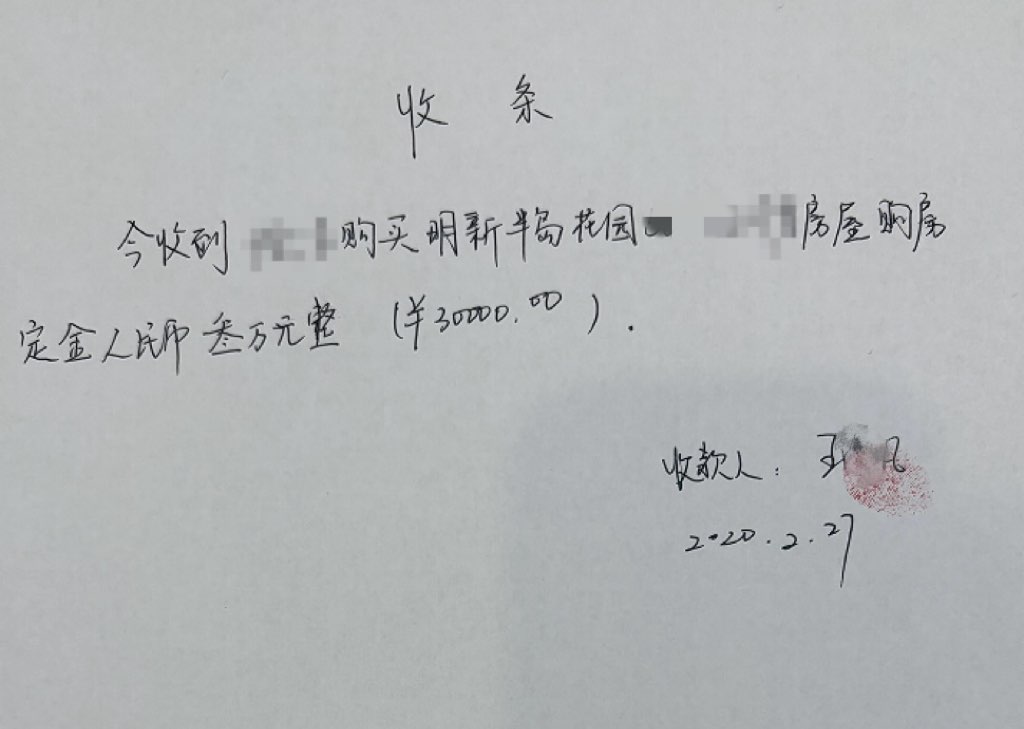 收 条
今收到 购买明新半岛花园 房屋购房
定金人民币叁万元整 (¥30000.00).
收款人: 王 凡
2020.2.27